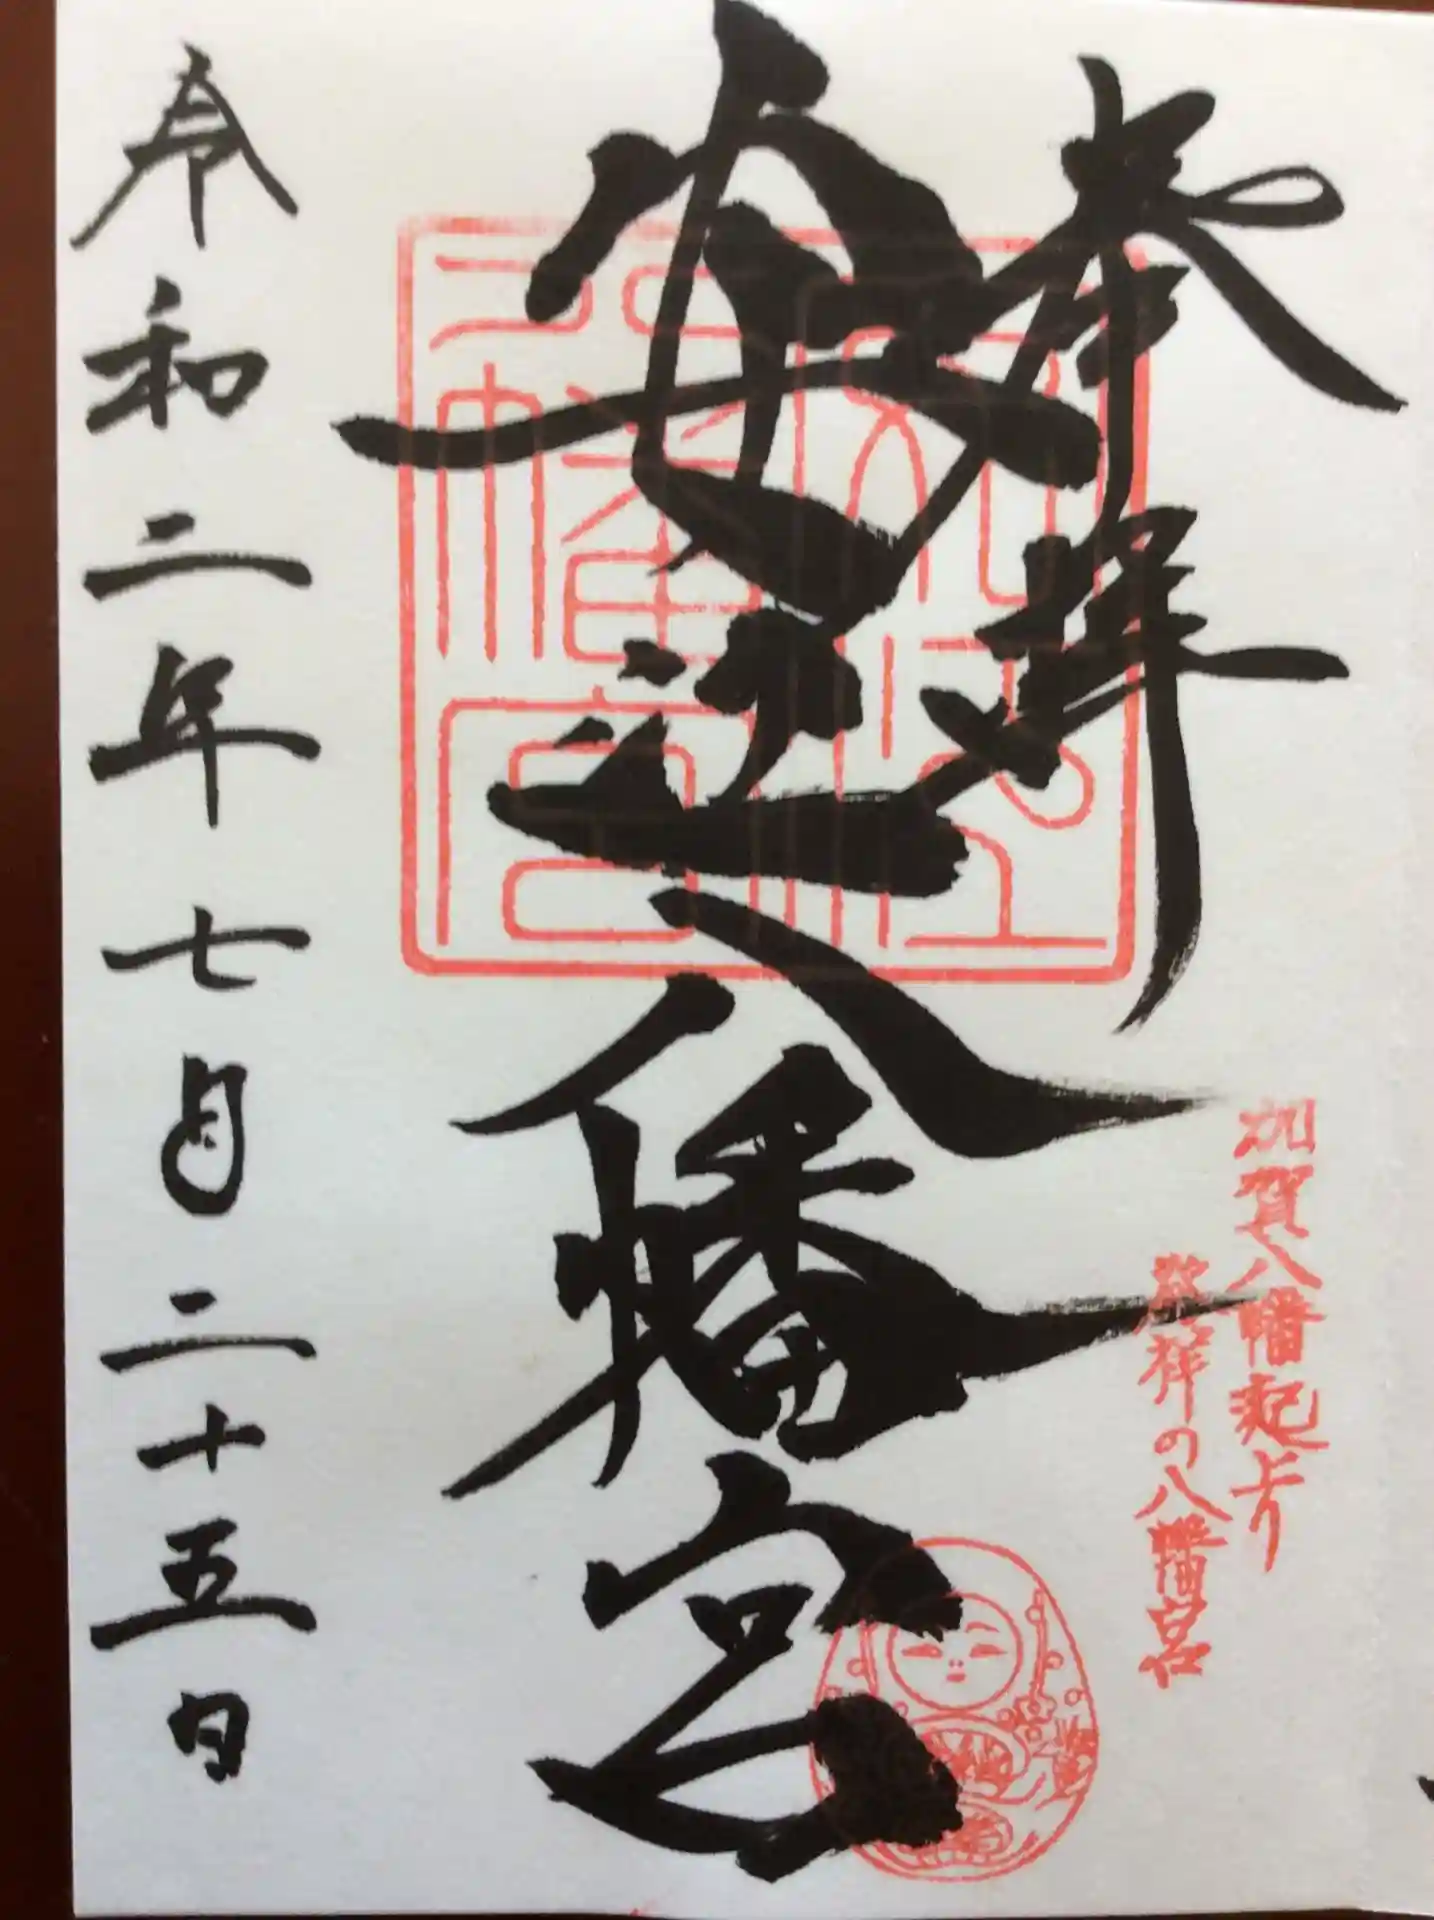 奉拝
加賀八幡起上り
発祥の八幡宮
安江八幡宮
令和二年七月二十五日